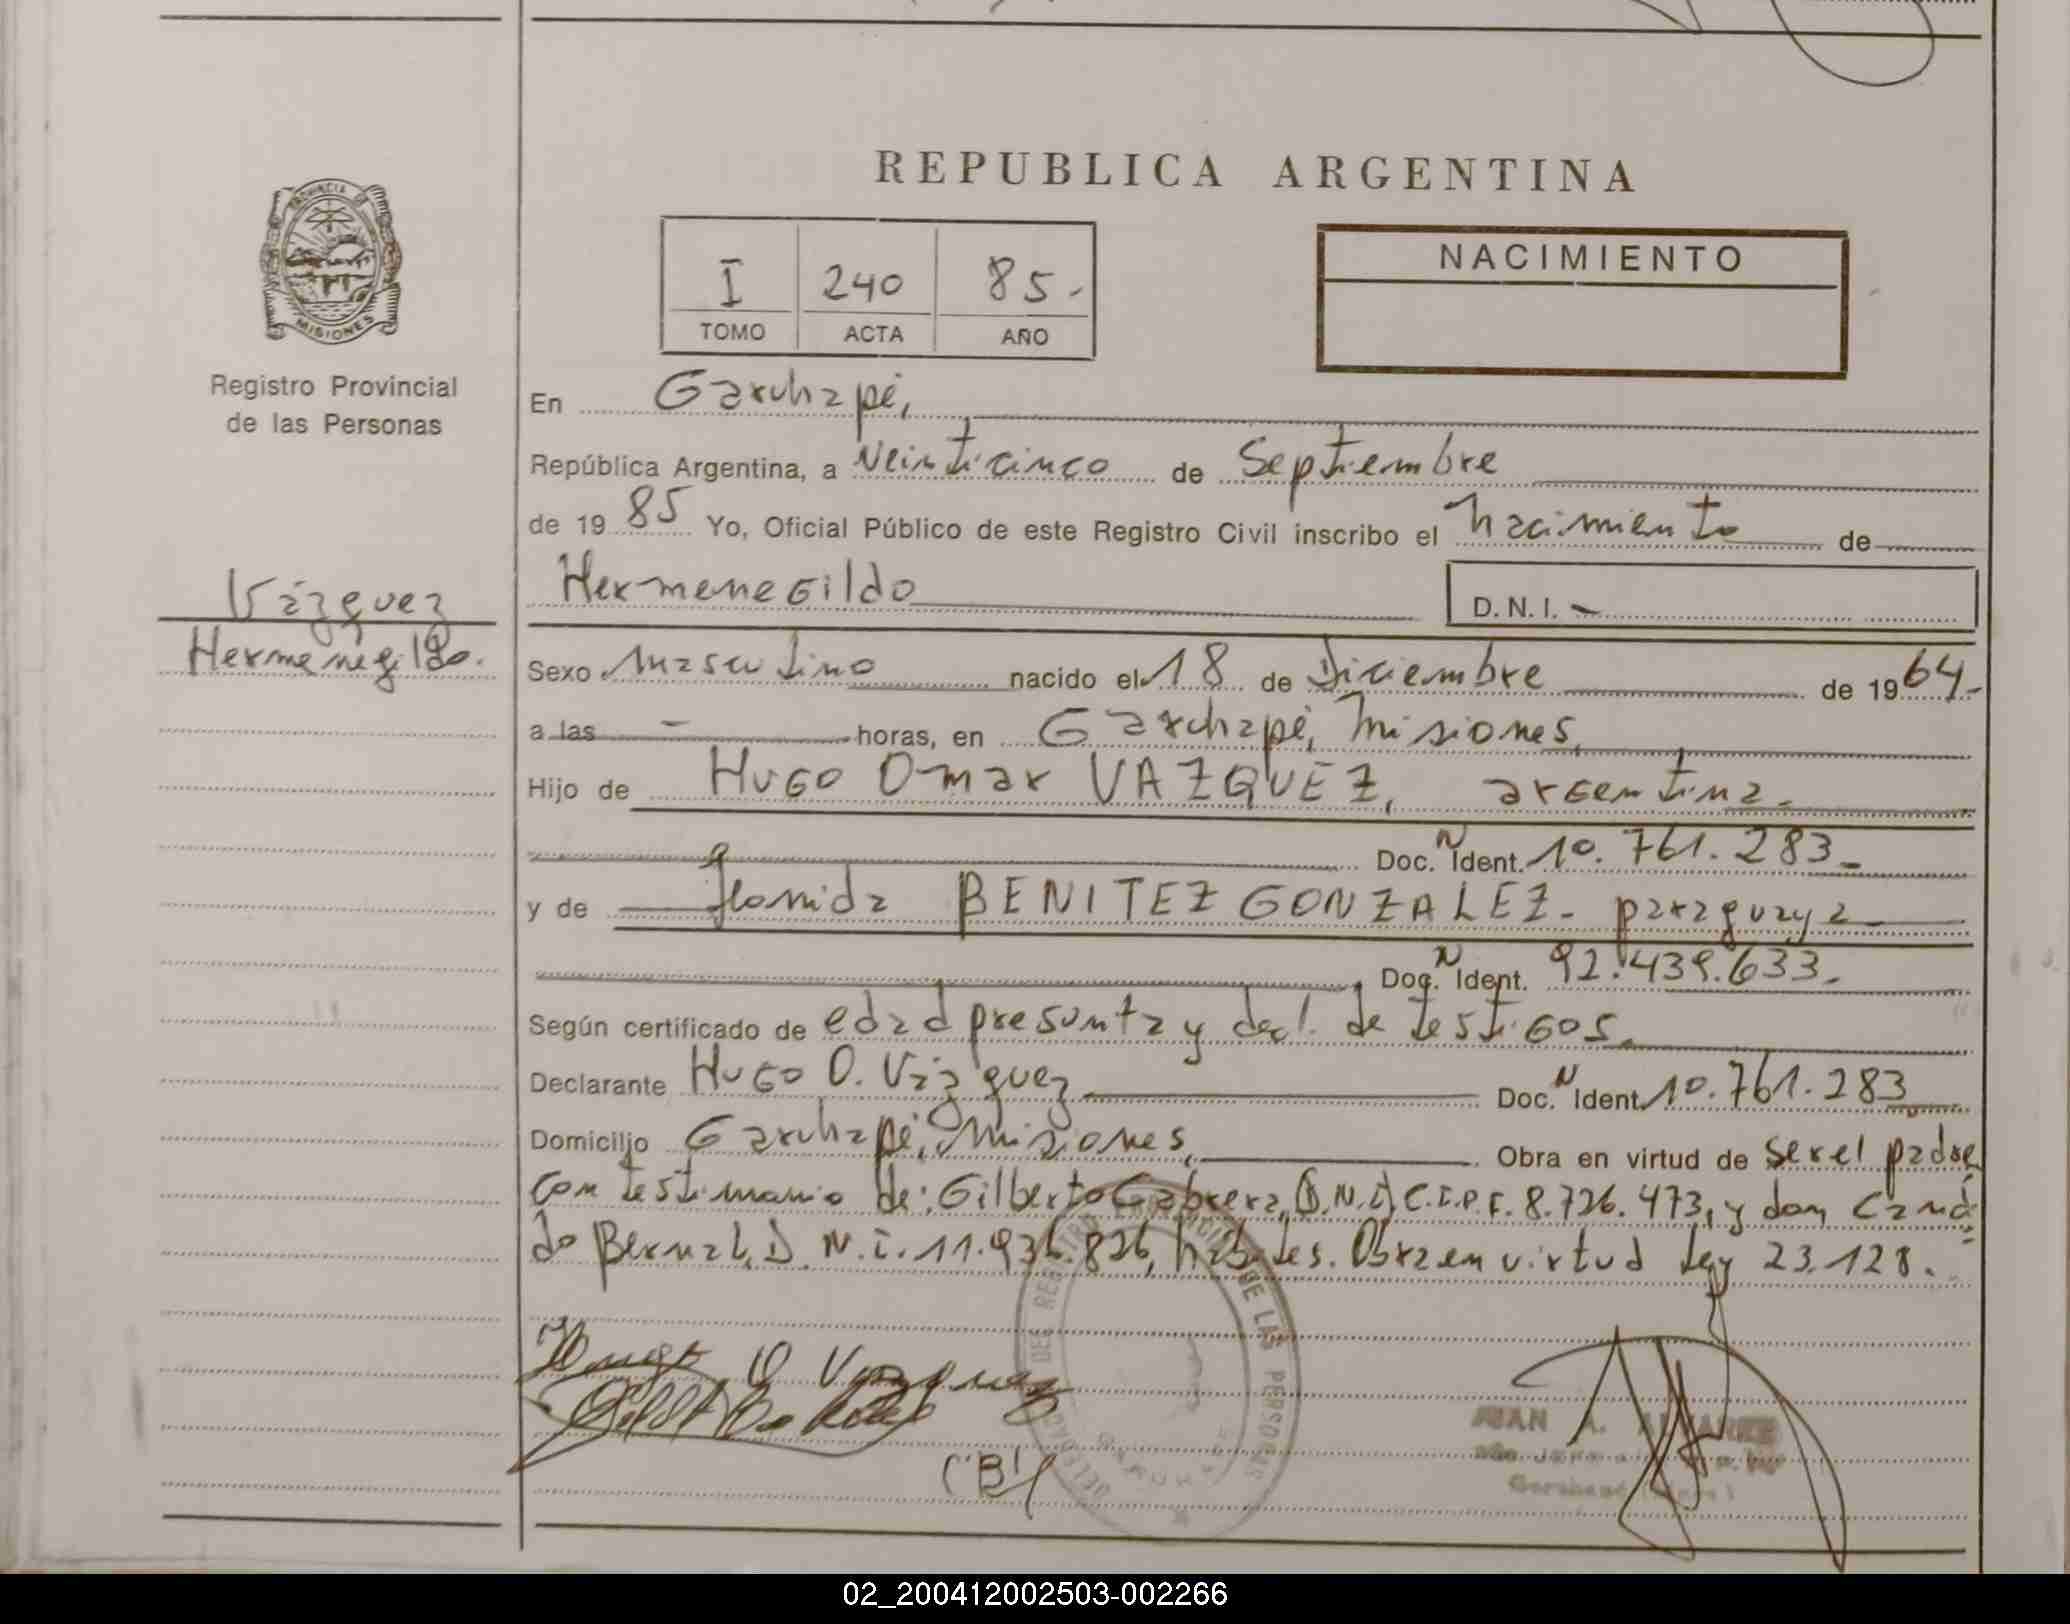 REPUBLICA ARGENTINA
PROVINCIA DE
MISIONES
Registro Provincial
de las Personas
I 240 85.-
TOMO ACTA AÑO
NACIMIENTO
En Garuhapé,
República Argentina, a Veinticinco de Septiembre
de 1985 Yo, Oficial Público de este Registro Civil inscribo el nacimiento de
Hermenegildo D.N.I. -
Vázquez
Hermenegildo.
Sexo masculino nacido el 18 de Diciembre de 1964.-
a las - horas, en Garuhapé, Misiones,
Hijo de Hugo Omar VAZQUEZ, argentina.
Doc. N Ident. 10.761.283.-
y de BENITEZ GONZALEZ.- paraguaya
Doc. N Ident. 92.439.633.-
Según certificado de edad presunta y decl. de testigos.
Declarante Hugo O. Vázquez Doc. N Ident. 10.761.283
Domicilio Garuhapé, Misiones, Obra en virtud de ser el padre
con testimonio de: Gilberto Cabrera, (D.N.I) C.I.P.F. 8.726.473, y don Candi
do Bernal, D.N.I. 11.936.826, hábiles. Obra en virtud ley 23.128.
Hugo O Vazquez
DELEGAC DEL REGISTRO PROVINCIAL DE LAS PERSONAS
JUAN A. ALVAREZ
02_200412002503-002266